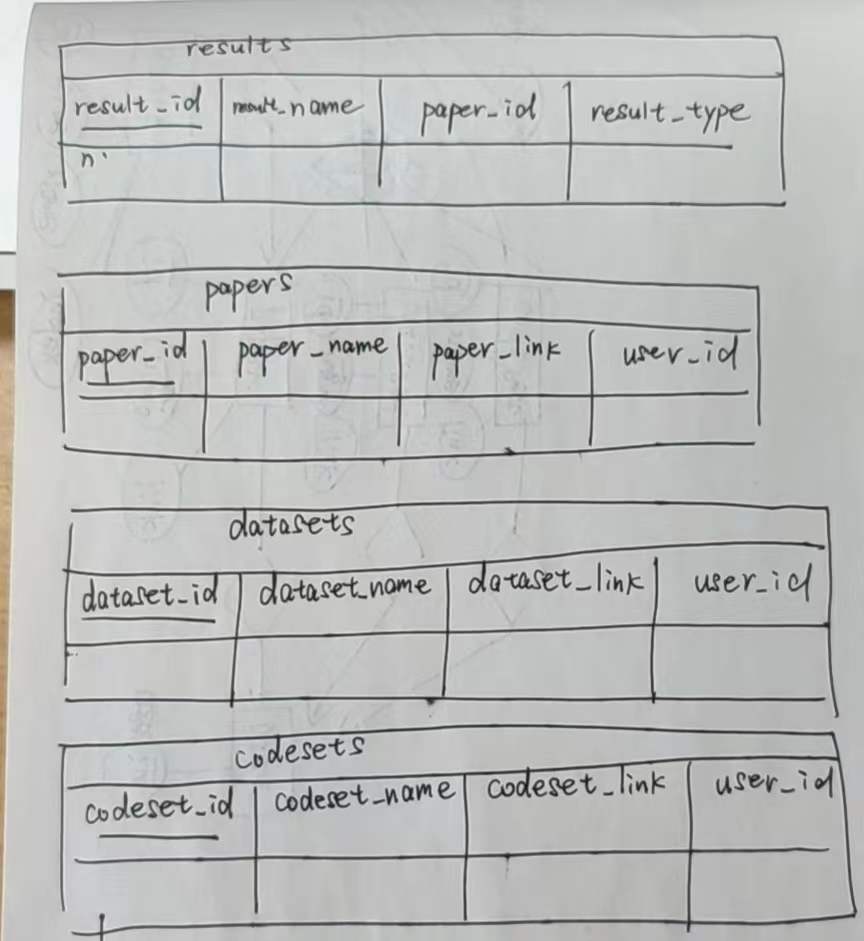 results
result_id result_name paper_id result_type
n
papers
paper_id paper_name paper_link user_id
datasets
dataset_id dataset_name dataset_link user_id
codesets
codeset_id codeset_name codeset_link user_id